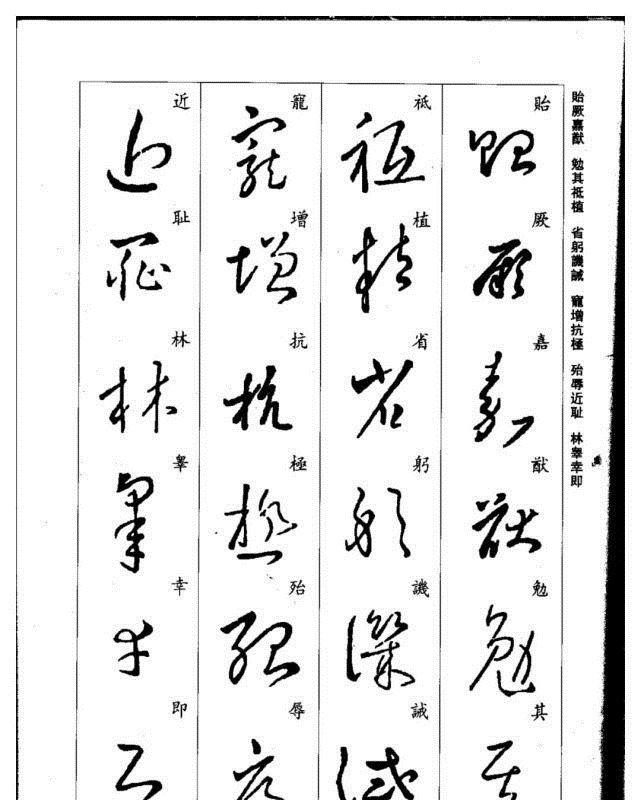 貽厥嘉猷 勉其祗植 省躬譏誡 寵增抗極 殆辱近耻 林皋幸即
貽厥嘉猷勉其
祗植省躬譏誡
寵增抗極殆辱
近耻林皋幸即